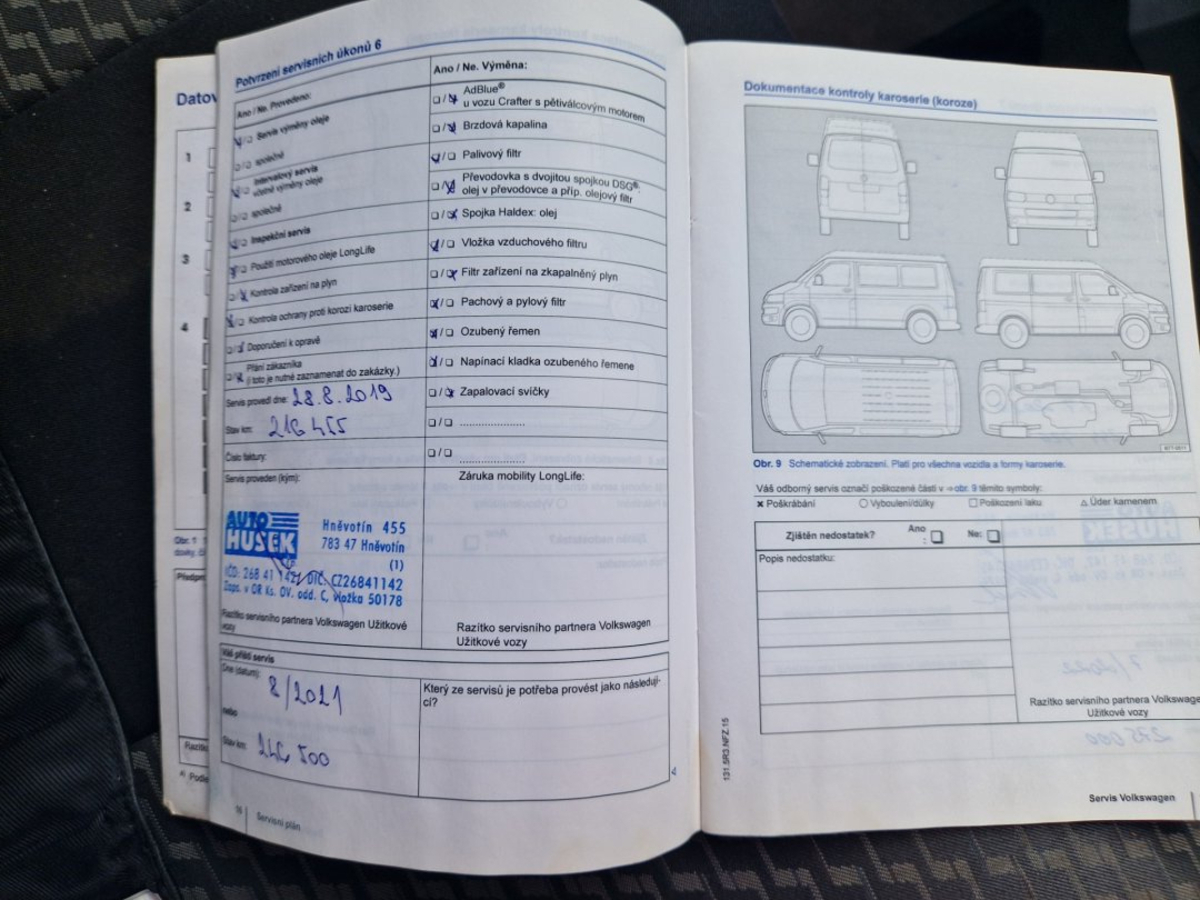 Datov
1
2
3
4
Potvrzení servisních úkonů 6
Ano / Ne. Provedeno:
Servis výměny oleje
společně
Intervalový servis
včetně výměny oleje
společně
Inspekční servis
Použití motorového oleje LongLife
Kontrola zařízení na plyn
Kontrola ochrany proti korozi karoserie
Doporučení k opravě
Přání zákazníka
(i toto je nutné zaznamenat do zakázky.)
Servis provedl dne: 28.8.2019
Stav km: 216 455
Číslo faktury:
Servis proveden (kým):
AUTO
HUSEK
Hněvotín 455
783 47 Hněvotín
(1)
IČO: 268 41 142, DIČ: CZ26841142
Zaps. v OR Ks. OV. odd. C, vložka 50178
Razítko servisního partnera Volkswagen Užitkové
vozy
Váš příští servis
Dne (datum):
8/2021
nebo
Stav km: 246 500
16 Servisní plán
Ano / Ne. Výměna:
AdBlue®
u vozu Crafter s pětiválcovým motorem
Brzdová kapalina
Palivový filtr
Převodovka s dvojitou spojkou DSG®:
olej v převodovce a příp. olejový filtr
Spojka Haldex: olej
Vložka vzduchového filtru
Filtr zařízení na zkapalněný plyn
Pachový a pylový filtr
Ozubený řemen
Napínací kladka ozubeného řemene
Zapalovací svíčky
Záruka mobility LongLife:
Razítko servisního partnera Volkswagen
Užitkové vozy
Který ze servisů je potřeba provést jako následují-
cí?
Dokumentace kontroly karoserie (koroze)
Obr. 9 Schematické zobrazení. Platí pro všechna vozidla a formy karoserie.
Váš odborný servis označí poškozené části v ⇒ obr. 9 těmito symboly:
× Poškrábání ○ Vyboulení/důlky □ Poškození laku △ Úder kamenem
Zjištěn nedostatek? Ano : □ Ne: □
Popis nedostatku:
Razítko servisního partnera Volkswage
Užitkové vozy
131.5R3.NFZ.15
Servis Volkswagen